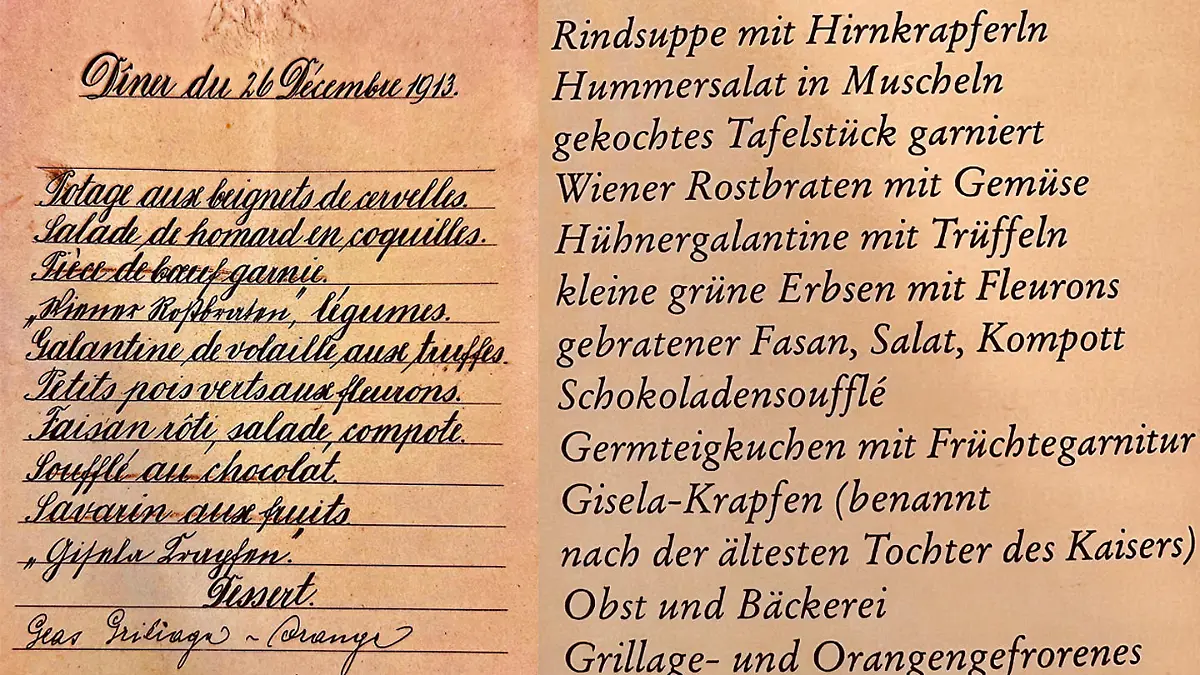 Dîner du 26 Décembre 1913.
Potage aux beignets de cervelles.
Salade de homard en coquilles.
Pièce de bœuf garnie.
„Wiener Roſtbraten“, légumes.
Galantine de volaille aux truffes.
Petits pois verts aux fleurons.
Faisan rôti, salade, compote.
Soufflé au chocolat.
Savarin aux fruits
„Giſela Krapfen.“
Dessert.
Glas Grillage ~ Orange
Rindsuppe mit Hirnkrapferln
Hummersalat in Muscheln
gekochtes Tafelstück garniert
Wiener Rostbraten mit Gemüse
Hühnergalantine mit Trüffeln
kleine grüne Erbsen mit Fleurons
gebratener Fasan, Salat, Kompott
Schokoladensoufflé
Germteigkuchen mit Früchtegarnitur
Gisela-Krapfen (benannt
nach der ältesten Tochter des Kaisers)
Obst und Bäckerei
Grillage- und Orangengefrorenes